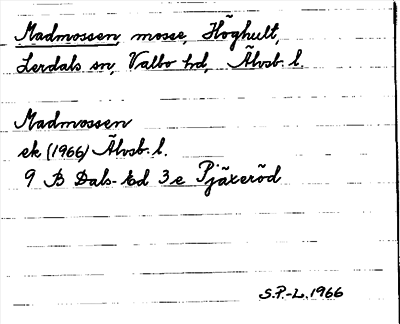 Madmossen, mosse, Höghult,
Lerdals sn, Valbo hd, Älvsb. l.
Madmossen
ek (1966) Älvsb. l.
9 B Dals-Ed 3 e Pjäxeröd
S.P.-L. 1966